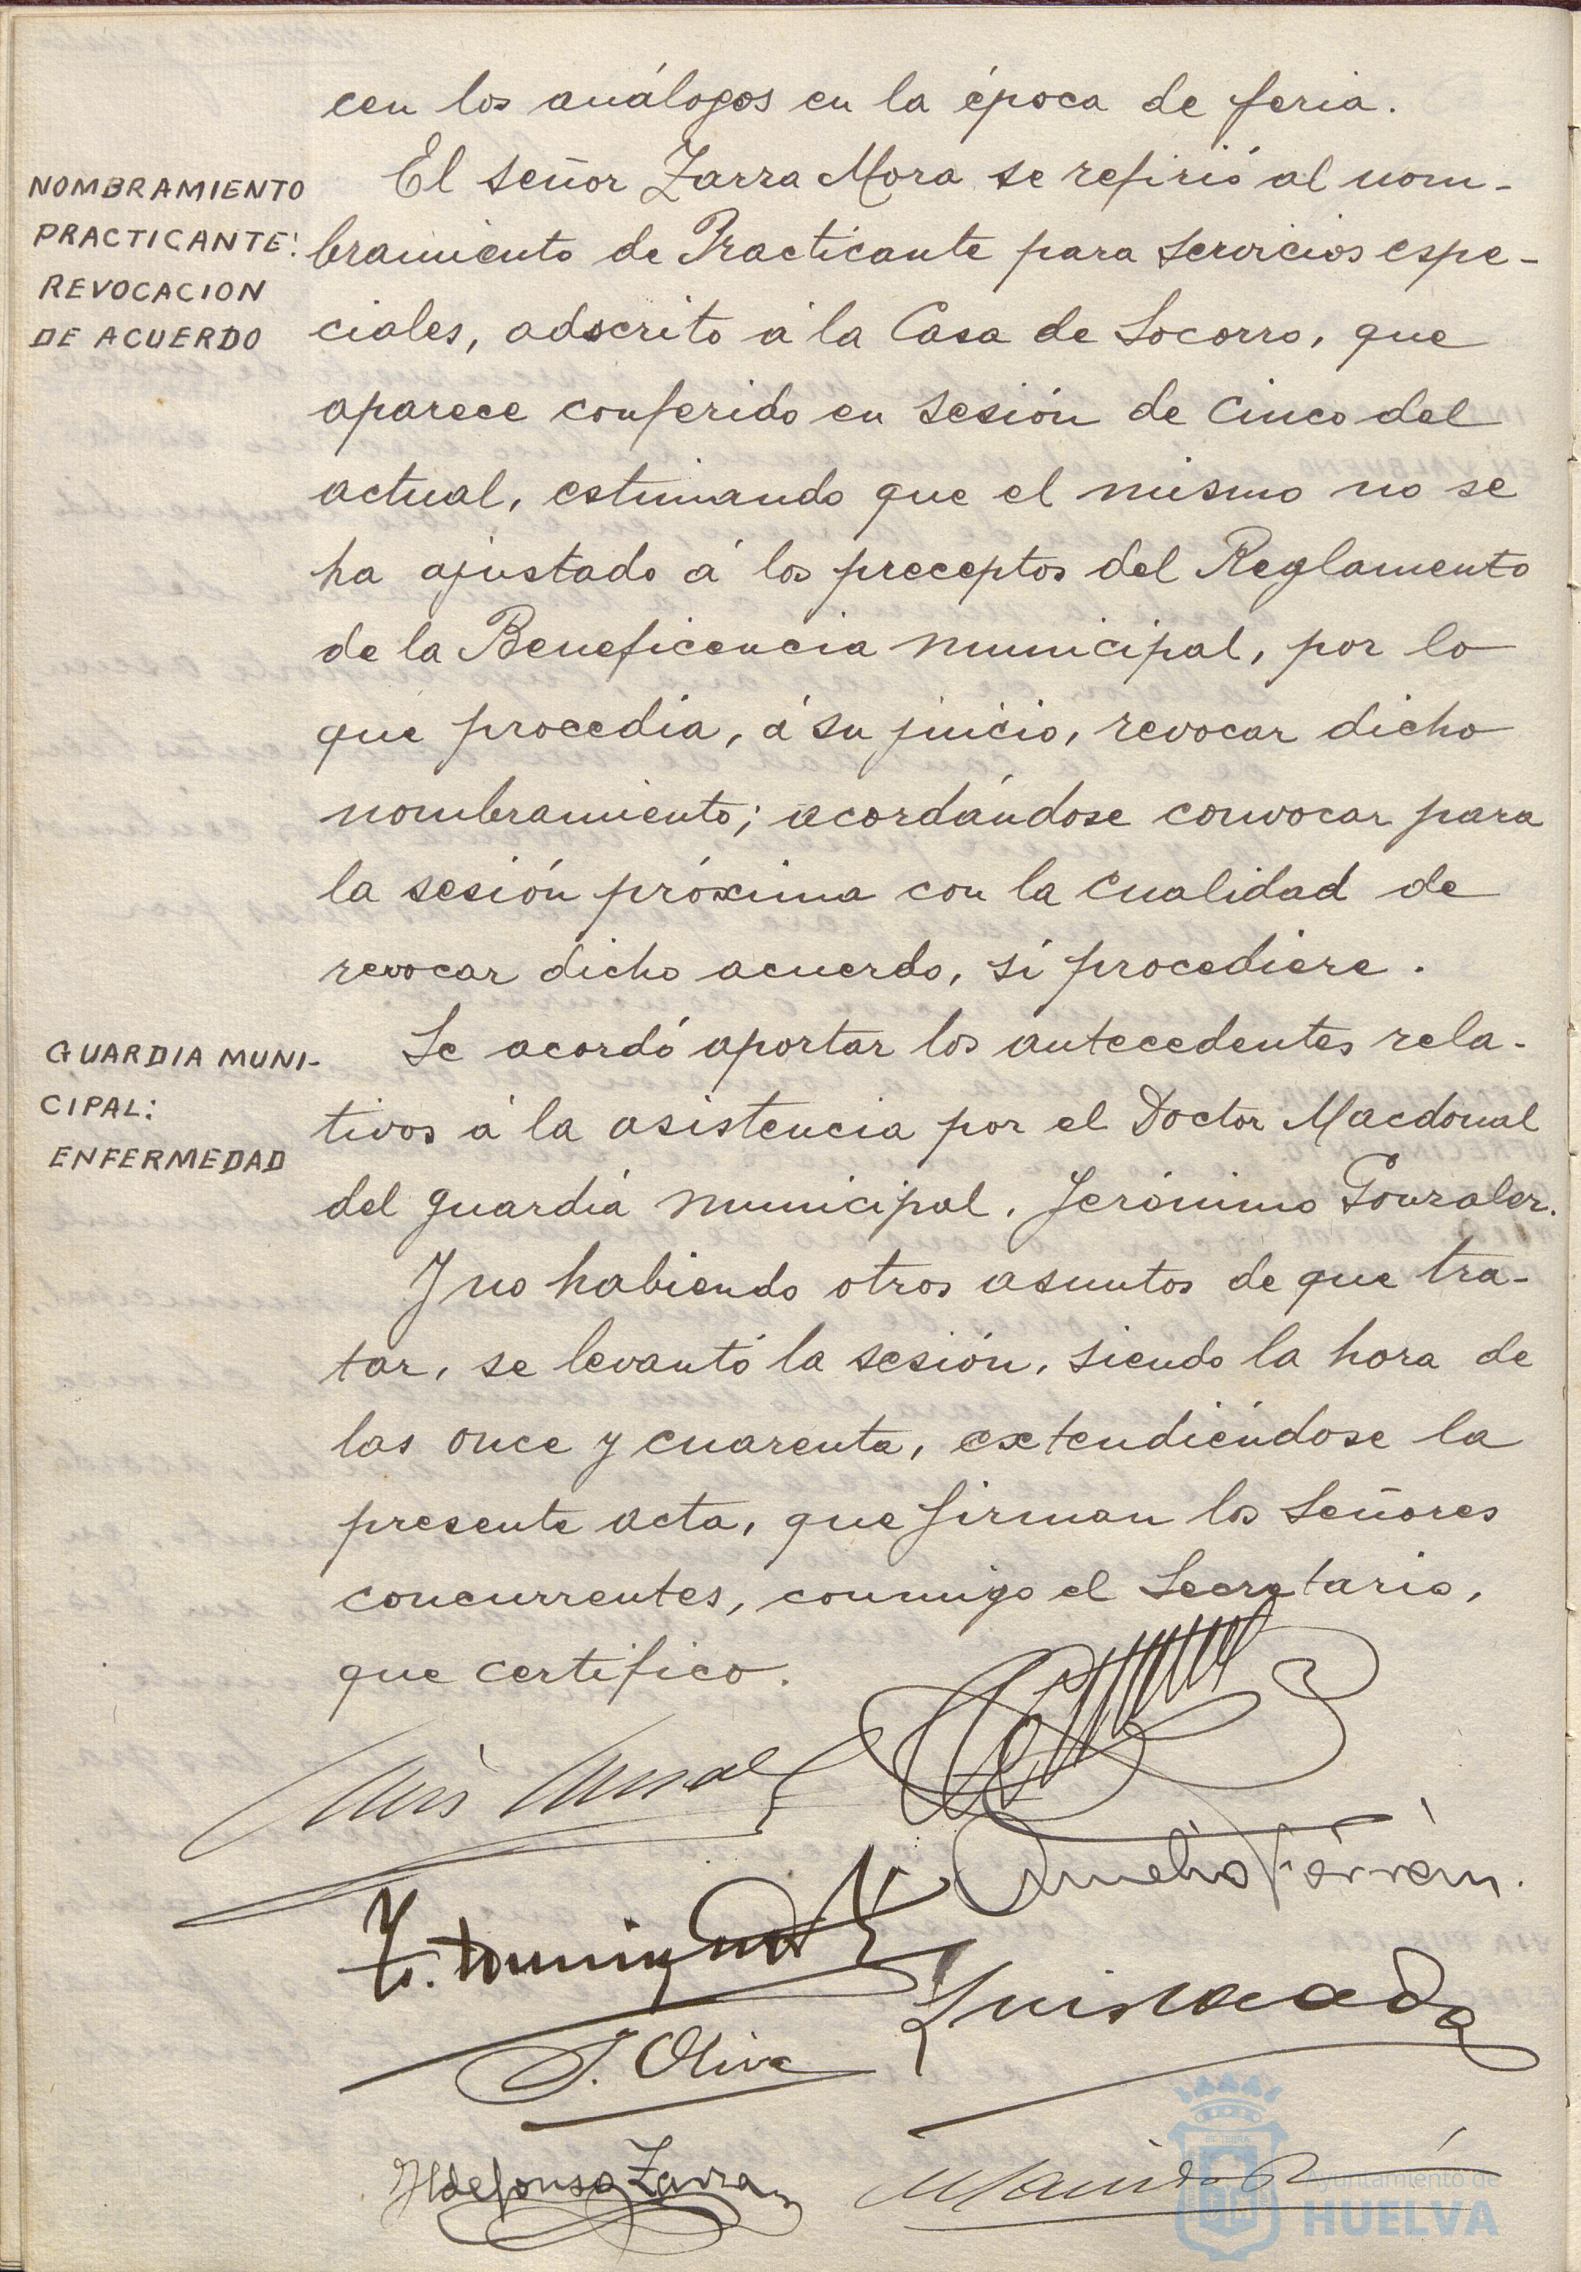 cen los análogos en la época de feria.
NOMBRAMIENTO
PRACTICANTE:
REVOCACION
DE ACUERDO
El señor Zarza Mora se refirió al nom-
bramiento de Practicante para servicios espe-
ciales, adscrito á la Casa de Socorro, que
aparece conferido en sesión de cinco del
actual, estimando que el mismo no se
ha ajustado á los preceptos del Reglamento
de la Beneficencia municipal, por lo
que procedía, á su juicio, revocar dicho
nombramiento; acordándose convocar para
la sesión próxima con la cualidad de
revocar dicho acuerdo, si procediere.
GUARDIA MUNI-
CIPAL:
ENFERMEDAD
Se acordó aportar los antecedentes rela-
tivos á la asistencia por el Doctor Macdonal
del guardia municipal, Jerónimo Gonzalez.
Y no habiendo otros asuntos de que tra-
tar, se levantó la sesión, siendo la hora de
las once y cuarenta, extendiéndose la
presente acta, que firman los Señores
concurrentes, conmigo el Secretario,
que certifico.
J. Oliva
Ildefonso Zarza
Ayuntamiento de
HUELVA